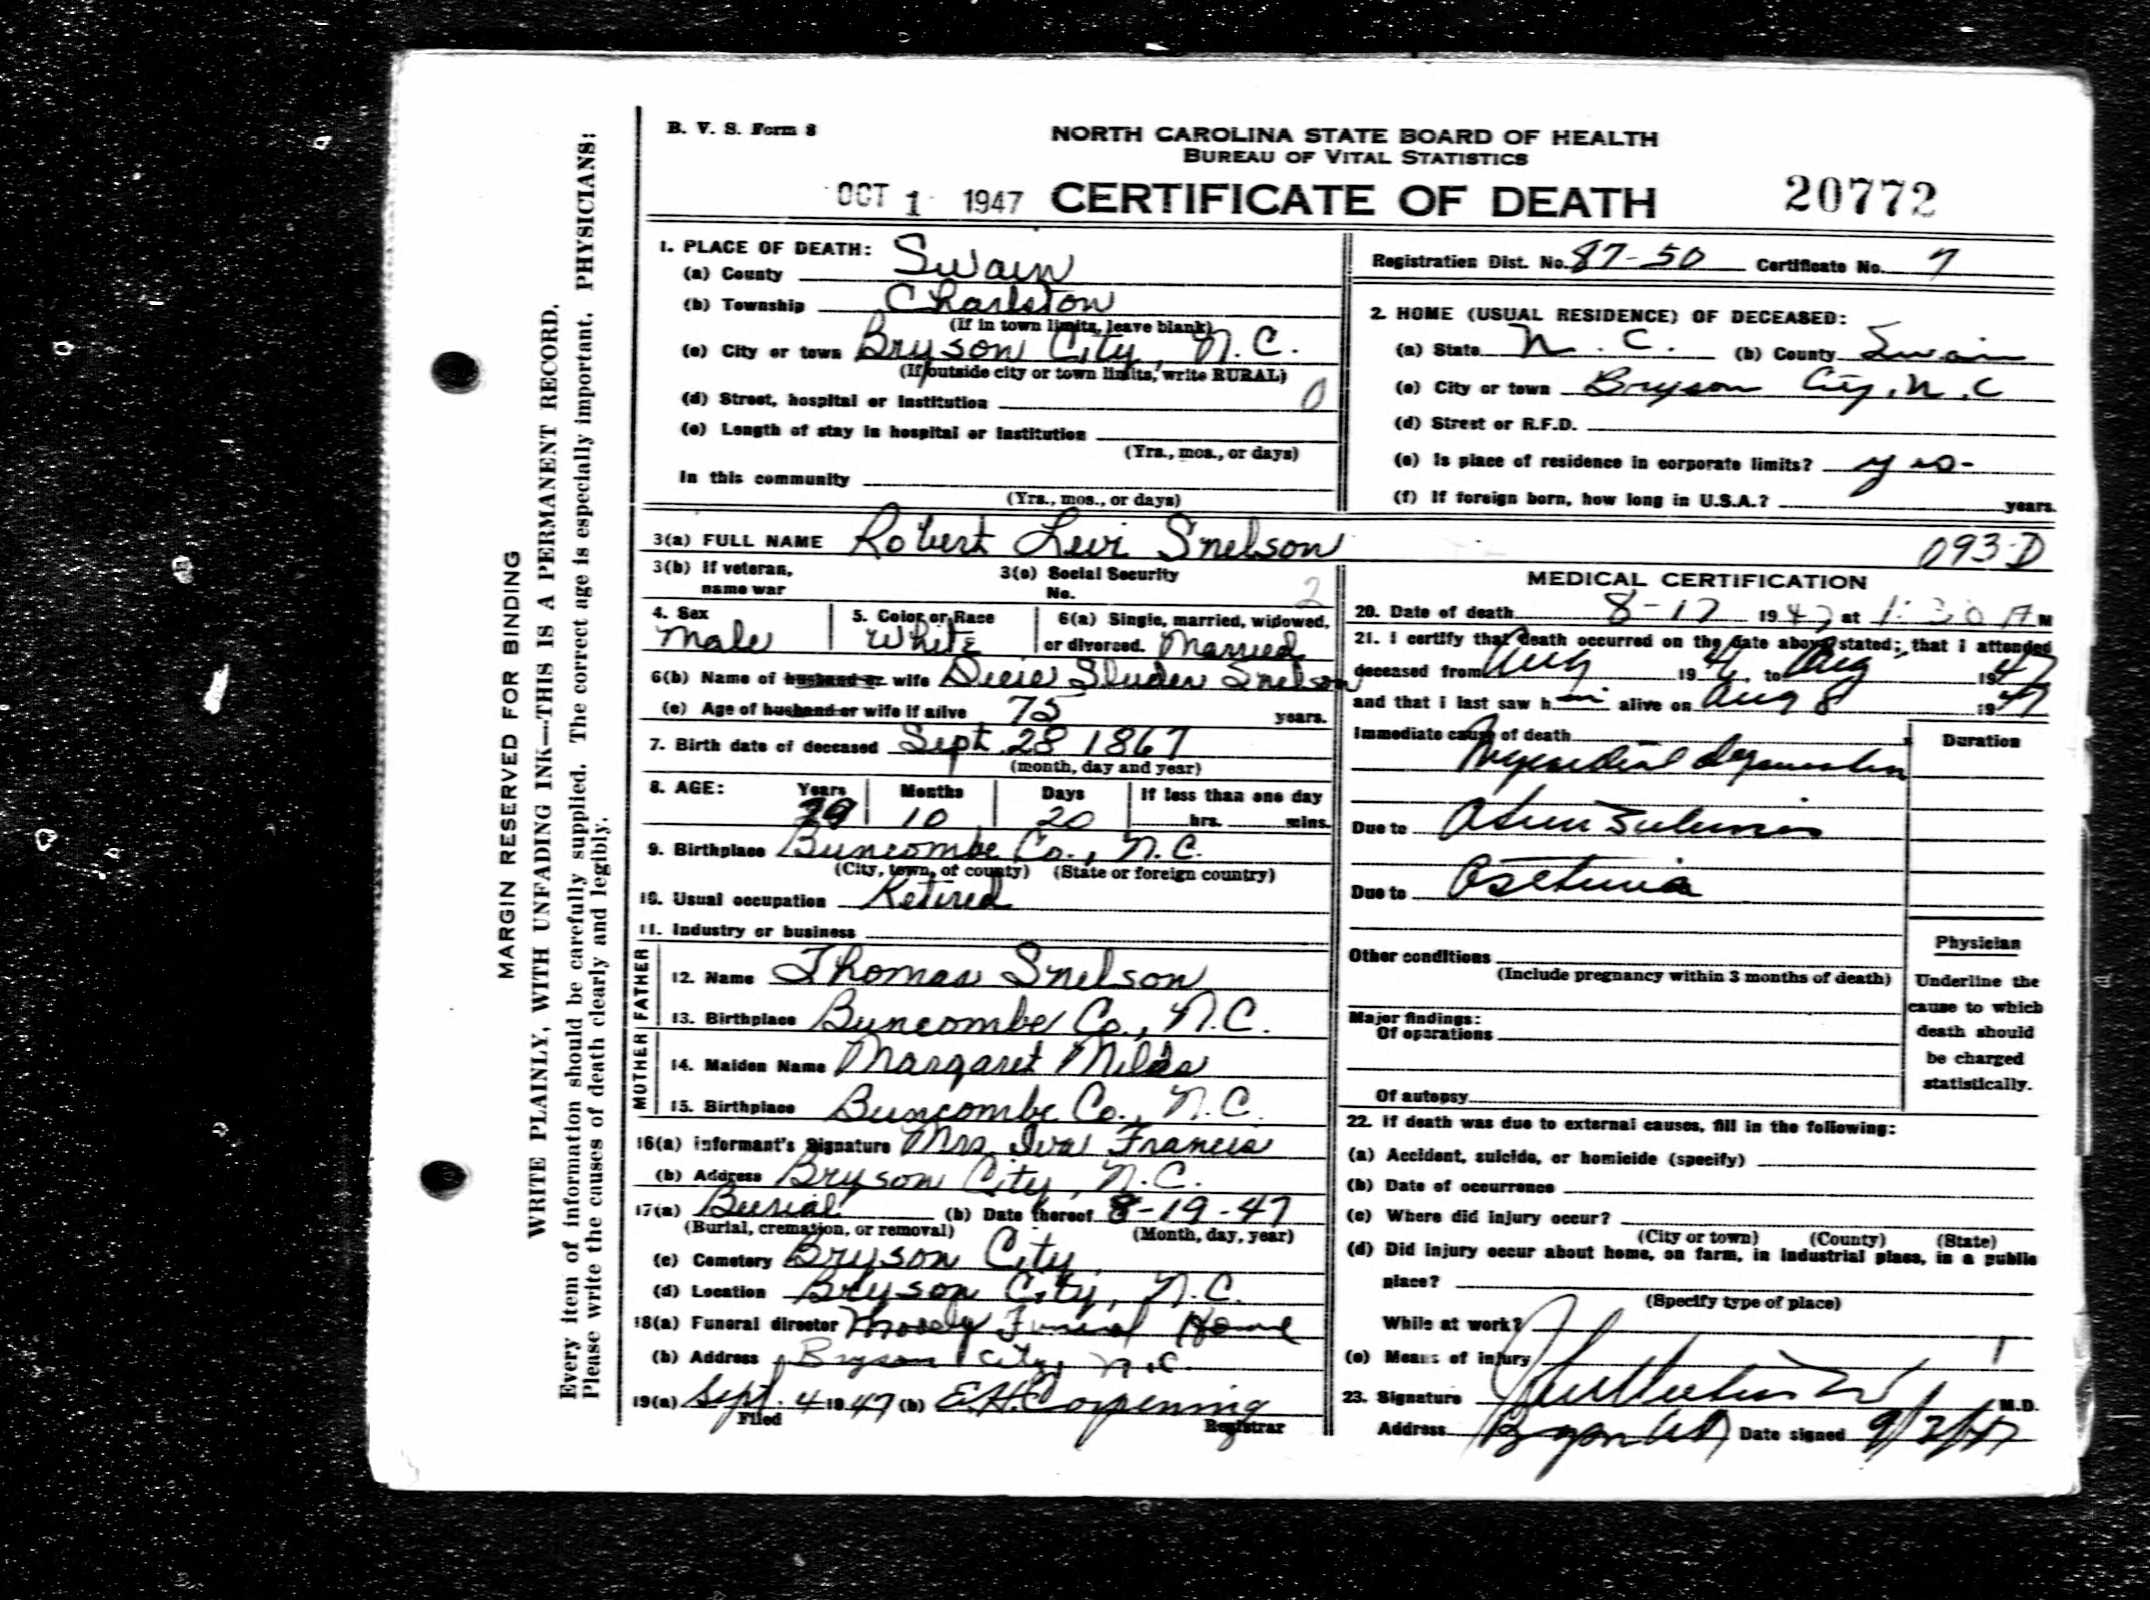 B. V. S. Form 8
NORTH CAROLINA STATE BOARD OF HEALTH
BUREAU OF VITAL STATISTICS
OCT 1 1947 CERTIFICATE OF DEATH 20772
MARGIN RESERVED FOR BINDING
WRITE PLAINLY, WITH UNFADING INK—THIS IS A PERMANENT RECORD.
Every item of information should be carefully supplied. The correct age is especially important. PHYSICIANS:
Please write the causes of death clearly and legibly.
1. PLACE OF DEATH:
(a) County Swain
(b) Township Charleston
(If in town limits, leave blank)
(c) City or town Bryson City, N.C.
(If outside city or town limits, write RURAL)
(d) Street, hospital or institution 0
(e) Length of stay in hospital or institution
(Yrs., mos., or days)
In this community
(Yrs., mos., or days)
Registration Dist. No. 87-50 Certificate No. 7
2. HOME (USUAL RESIDENCE) OF DECEASED:
(a) State N. C. (b) County Swain
(c) City or town Bryson City, N.C
(d) Street or R.F.D.
(e) Is place of residence in corporate limits? yes-
(f) If foreign born, how long in U.S.A.? years.
3(a) FULL NAME Robert Levi Snelson 093-D
3(b) If veteran, name war
3(c) Social Security No. 2
4. Sex Male
5. Color or Race White
6(a) Single, married, widowed, or divorced. Married
6(b) Name of husband or wife Dicie Sluder Snelson
(c) Age of husband or wife if alive 75 years.
7. Birth date of deceased Sept. 28 1867
(month, day and year)
8. AGE: Years 79 Months 10 Days 20 If less than one day hrs. mins.
9. Birthplace Buncombe Co., N.C.
(City, town, or county) (State or foreign country)
10. Usual occupation Retired
11. Industry or business
FATHER
12. Name Thomas Snelson
13. Birthplace Buncombe Co., N.C.
MOTHER
14. Maiden Name Margaret
15. Birthplace Buncombe Co., N.C.
16(a) Informant's Signature Mrs. Iva Francis
(b) Address Bryson City, N.C.
17(a) Burial (b) Date thereof 8-19-47
(Burial, cremation, or removal) (Month, day, year)
(c) Cemetery Bryson City
(d) Location Bryson City, N.C.
18(a) Funeral director Moody Funeral Home
(b) Address Bryson City, N.C.
19(a) Sept. 4 1947 (b) E.H. Corpening
Filed Registrar
MEDICAL CERTIFICATION
20. Date of death 8-17 1947 at 1:30 A M
21. I certify that death occurred on the date above stated; that I attended
deceased from Aug 19 , to Aug 1947
and that I last saw him alive on Aug 8 1947
Immediate cause of death Duration
Myocardial
Due to
Due to
Other conditions
(Include pregnancy within 3 months of death)
Major findings:
Of operations
Of autopsy
Physician
Underline the
cause to which
death should
be charged
statistically.
22. If death was due to external causes, fill in the following:
(a) Accident, suicide, or homicide (specify)
(b) Date of occurrence
(c) Where did injury occur?
(City or town) (County) (State)
(d) Did injury occur about home, on farm, in industrial place, in a public
place?
(Specify type of place)
While at work?
(e) Means of injury
23. Signature M.D.
Address Date signed 9/2/47